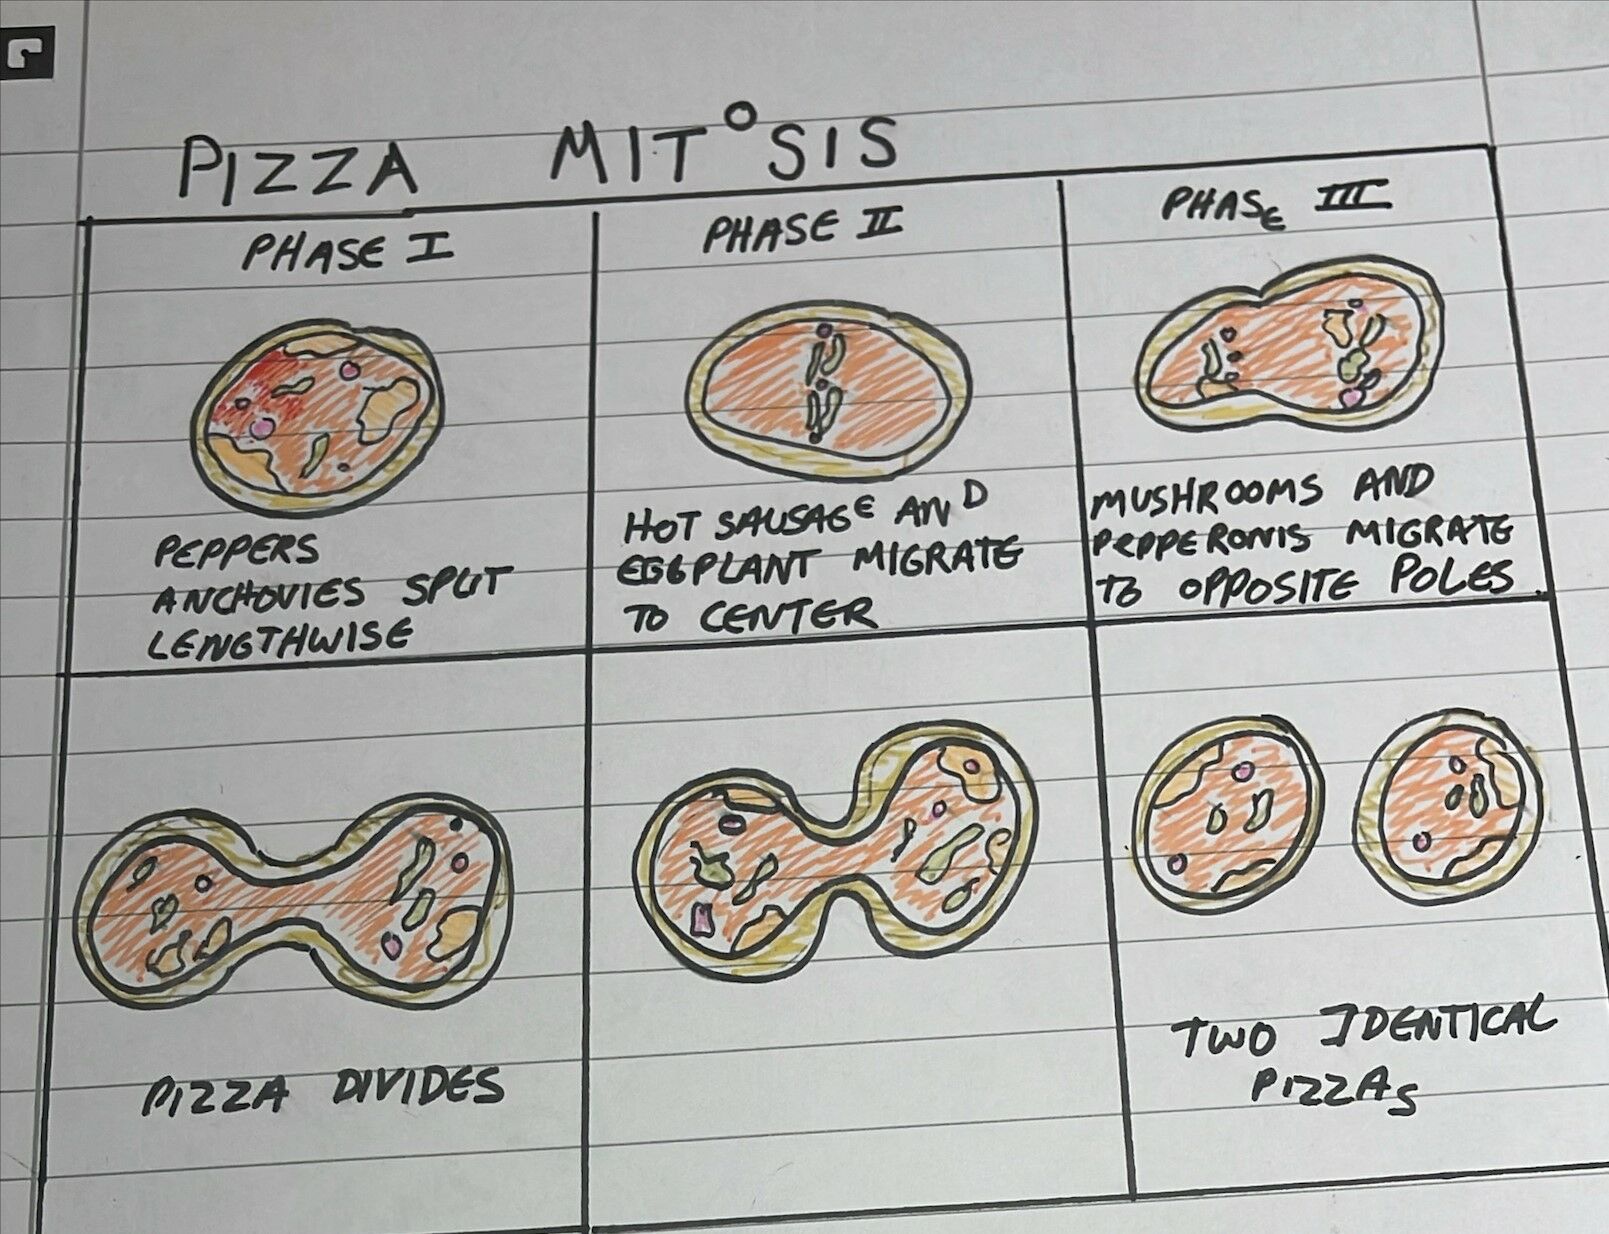 PIZZA MITOSIS
PHASE I
PEPPERS
ANCHOVIES SPLIT
LENGTHWISE
PHASE II
HOT SAUSAGE AND
EGGPLANT MIGRATE
TO CENTER
PHASE III
MUSHROOMS AND
PEPPERONIS MIGRATE
TO OPPOSITE POLES
PIZZA DIVIDES
TWO IDENTICAL
PIZZAS